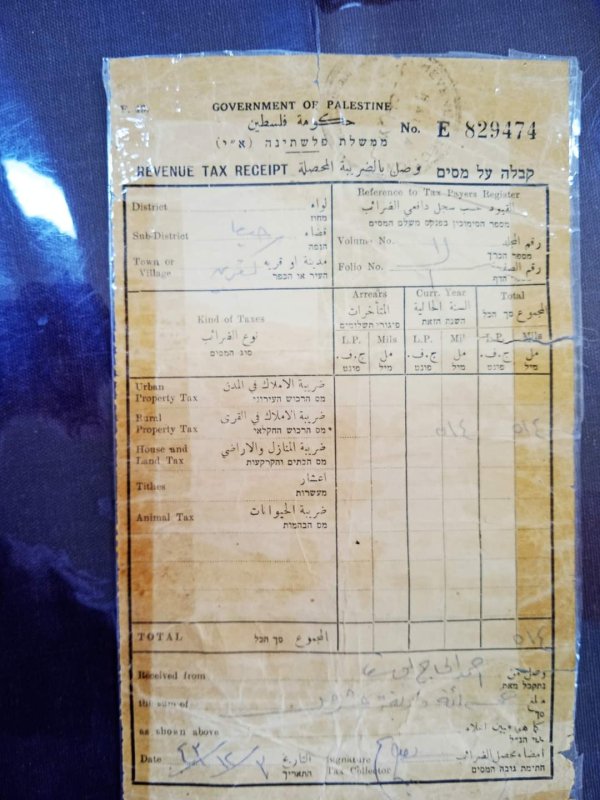 F. 40.
GOVERNMENT OF PALESTINE
حكومة فلسطين
ממשלת פלשתינה (א״י)
No. E 829474
REVENUE TAX RECEIPT وصل بالضريبة المحصلة קבלה על מסים
District لواء
מחוז
Sub-District قضاء حيفا
הנפה
Town or Village مدينة او قرية
העיר או הכפר
Reference to Tax Payers Register
القيود حسب سجل دافعي الضرائب
מספר הסימוכין בפנקס משלם המסים
Volume No. رقم المجلد
מספר הכרך
Folio No. رقم
הדף
Kind of Taxes
نوع الضرائب
סוג המסים
Arrears Curr. Year Total
المتأخرات السنة الحالية المجموع סך הכל
פיגורי תשלומים השנה הזאת
L.P. Mils L.P. Mils L.P. Mils
ج.ف. مل ج.ف. مل ج.ف. مل
פונט מיל פונט מיל פונט מיל
Urban Property Tax ضريبة الاملاك في المدن
מס הרכוש העירוני
Rural Property Tax ضريبة الاملاك في القرى
מס הרכוש החקלאי
٤١٥ ٤١٥
House and Land Tax ضريبة المنازل والاراضي
מס הבתים והקרקעות
Tithes اعشار
מעשרות
Animal Tax ضريبة الحيوانات
מס הבהמות
TOTAL المجموع סך הכל ٤١٥
Received from احمد الحاج وصل من
נתקבל מאת
the sum of مبلغ
סך
as shown above كما هو مبين اعلاه
כנ״ל
Date التاريخ
התאריך
Signature Tax Collector امضاء محصل الضرائب
חתימת גובה המסים